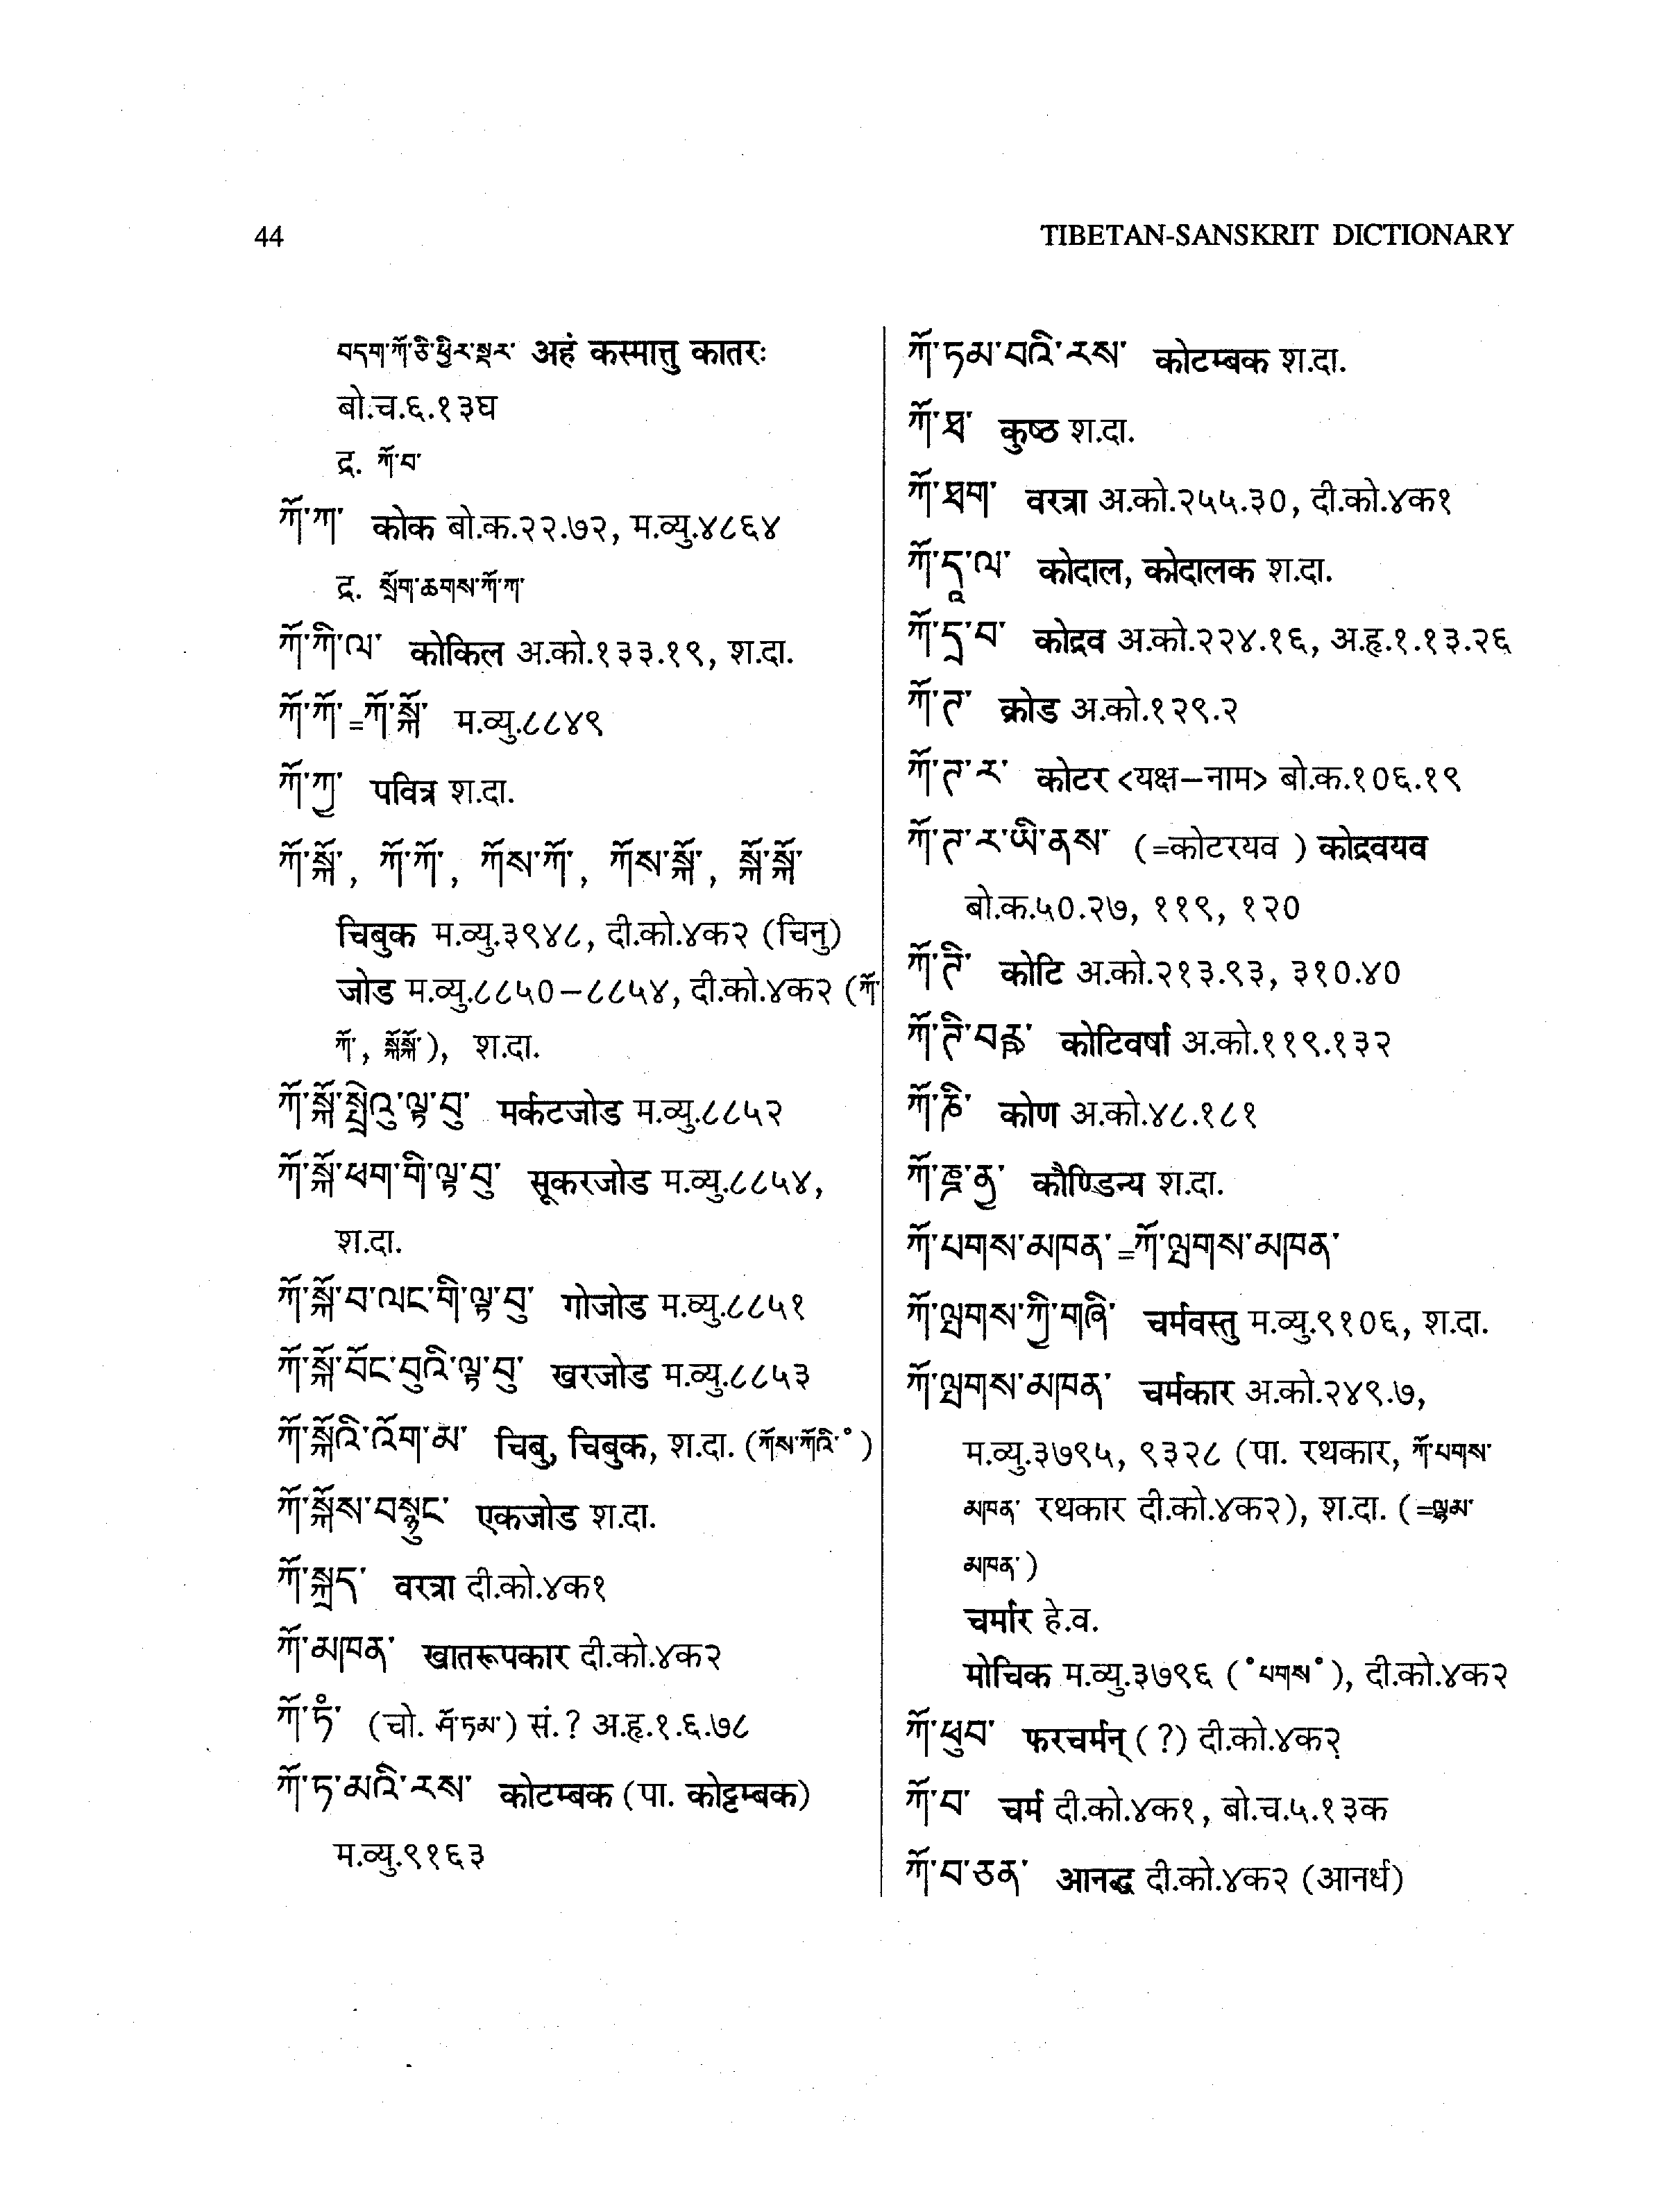 44
TIBETAN-SANSKRIT DICTIONARY
བདག་ཀོ་ཅི་ཕྱིར་སྡར་ अहं कस्मात्तु कातरः
बो.च.६.१३घ
द्र. ཀོ་བ་
ཀོ་ཀ་ कोक बो.क.२२.७२, म.व्यु.४८६४
द्र. སྲོག་ཆགས་ཀོ་ཀ་
ཀོ་ཀི་ལ་ कोकिल अ.को.१३३.१९, श.दा.
ཀོ་ཀོ་=ཀོ་སྐོ་ म.व्यु.८८४९
ཀོ་ཀྱ་ पवित्र श.दा.
ཀོ་སྐོ་, ཀོ་ཀོ་, ཀོས་ཀོ་, ཀོས་སྐོ་, སྐོ་སྐོ་
चिबुक म.व्यु.३९४८, दी.को.४क२ (चिनु)
जोड म.व्यु.८८५०–८८५४, दी.को.४क२ (ཀོ་
ཀོ་, སྐོསྐོ་), श.दा.
ཀོ་སྐོ་སྤྲེའུ་ལྟ་བུ་ मर्कटजोड म.व्यु.८८५२
ཀོ་སྐོ་ཕག་གི་ལྟ་བུ་ सूकरजोड म.व्यु.८८५४,
श.दा.
ཀོ་སྐོ་བ་ལང་གི་ལྟ་བུ་ गोजोड म.व्यु.८८५१
ཀོ་སྐོ་བོང་བུའི་ལྟ་བུ་ खरजोड म.व्यु.८८५३
ཀོ་སྐོའི་འོག་མ་ चिबु, चिबुक, श.दा. (ཀོས་ཀོའི་॰)
ཀོ་སྐོས་བསྙུང་ एकजोड श.दा.
ཀོ་སྐྲད་ वरत्रा दी.को.४क१
ཀོ་མཁན་ खातरूपकार दी.को.४क२
ཀོ་ཏཾ་ (चो. ཤོ་ཏམ་) सं.? अ.हृ.१.६.७८
ཀོ་ཏ་མའི་རས་ कोटम्बक (पा. कोट्टम्बक)
म.व्यु.९१६३
ཀོ་ཏམ་བའི་རས་ कोटम्बक श.दा.
ཀོ་ཐ་ कुष्ठ श.दा.
ཀོ་ཐག་ वरत्रा अ.को.२५५.३०, दी.को.४क१
ཀོ་དཱུ་ལ་ कोदाल, कोदालक श.दा.
ཀོ་དྲ་བ་ कोद्रव अ.को.२२४.१६, अ.हृ.१.१३.२६
ཀོ་ཊ་ क्रोड अ.को.१२९.२
ཀོ་ཊ་ར་ कोटर <यक्ष–नाम> बो.क.१०६.१९
ཀོ་ཊ་ར་ཡི་ནས་ (=कोटरयव ) कोद्रवयव
बो.क.५०.२७, ११९, १२०
ཀོ་ཊི་ कोटि अ.को.२१३.९३, ३१०.४०
ཀོ་ཊི་བརྵ་ कोटिवर्षा अ.को.११९.१३२
ཀོ་ཎི་ कोण अ.को.४८.१८१
ཀོ་ཎྜ་ནྱ་ कौण्डिन्य श.दा.
ཀོ་པགས་མཁན་=ཀོ་ལྤགས་མཁན་
ཀོ་ལྤགས་ཀྱི་གཞི་ चर्मवस्तु म.व्यु.९१०६, श.दा.
ཀོ་ལྤགས་མཁན་ चर्मकार अ.को.२४९.७,
म.व्यु.३७९५, ९३२८ (पा. रथकार, ཀོ་པགས་
མཁན་ रथकार दी.को.४क२), श.दा. (=ལྷམ་
མཁན་)
चर्मार हे.व.
मोचिक म.व्यु.३७९६ (॰པགས་॰), दी.को.४क२
ཀོ་ཕུབ་ फरचर्मन् (?) दी.को.४क२
ཀོ་བ་ चर्म दी.को.४क१, बो.च.५.१३क
ཀོ་བ་ཅན་ आनद्ध दी.को.४क२ (आनर्ध)